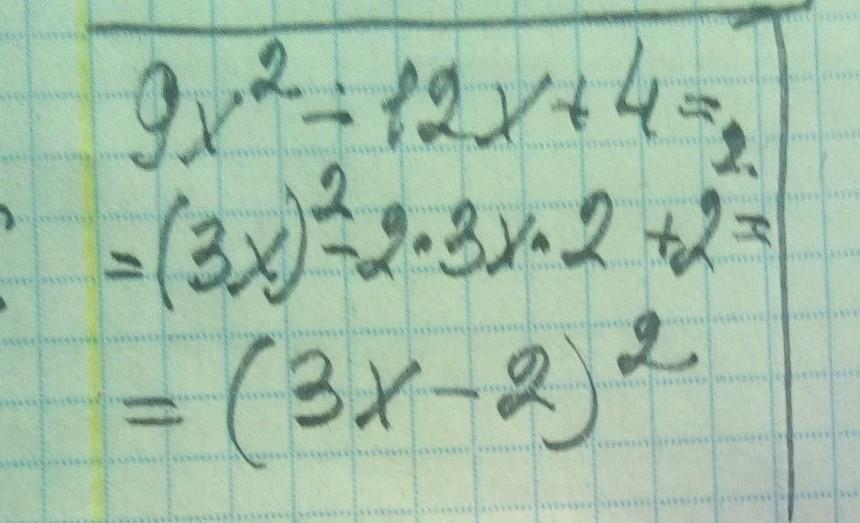 9x² - 12x + 4 =
= (3x)² - 2 · 3x · 2 + 2² =
= (3x - 2)²